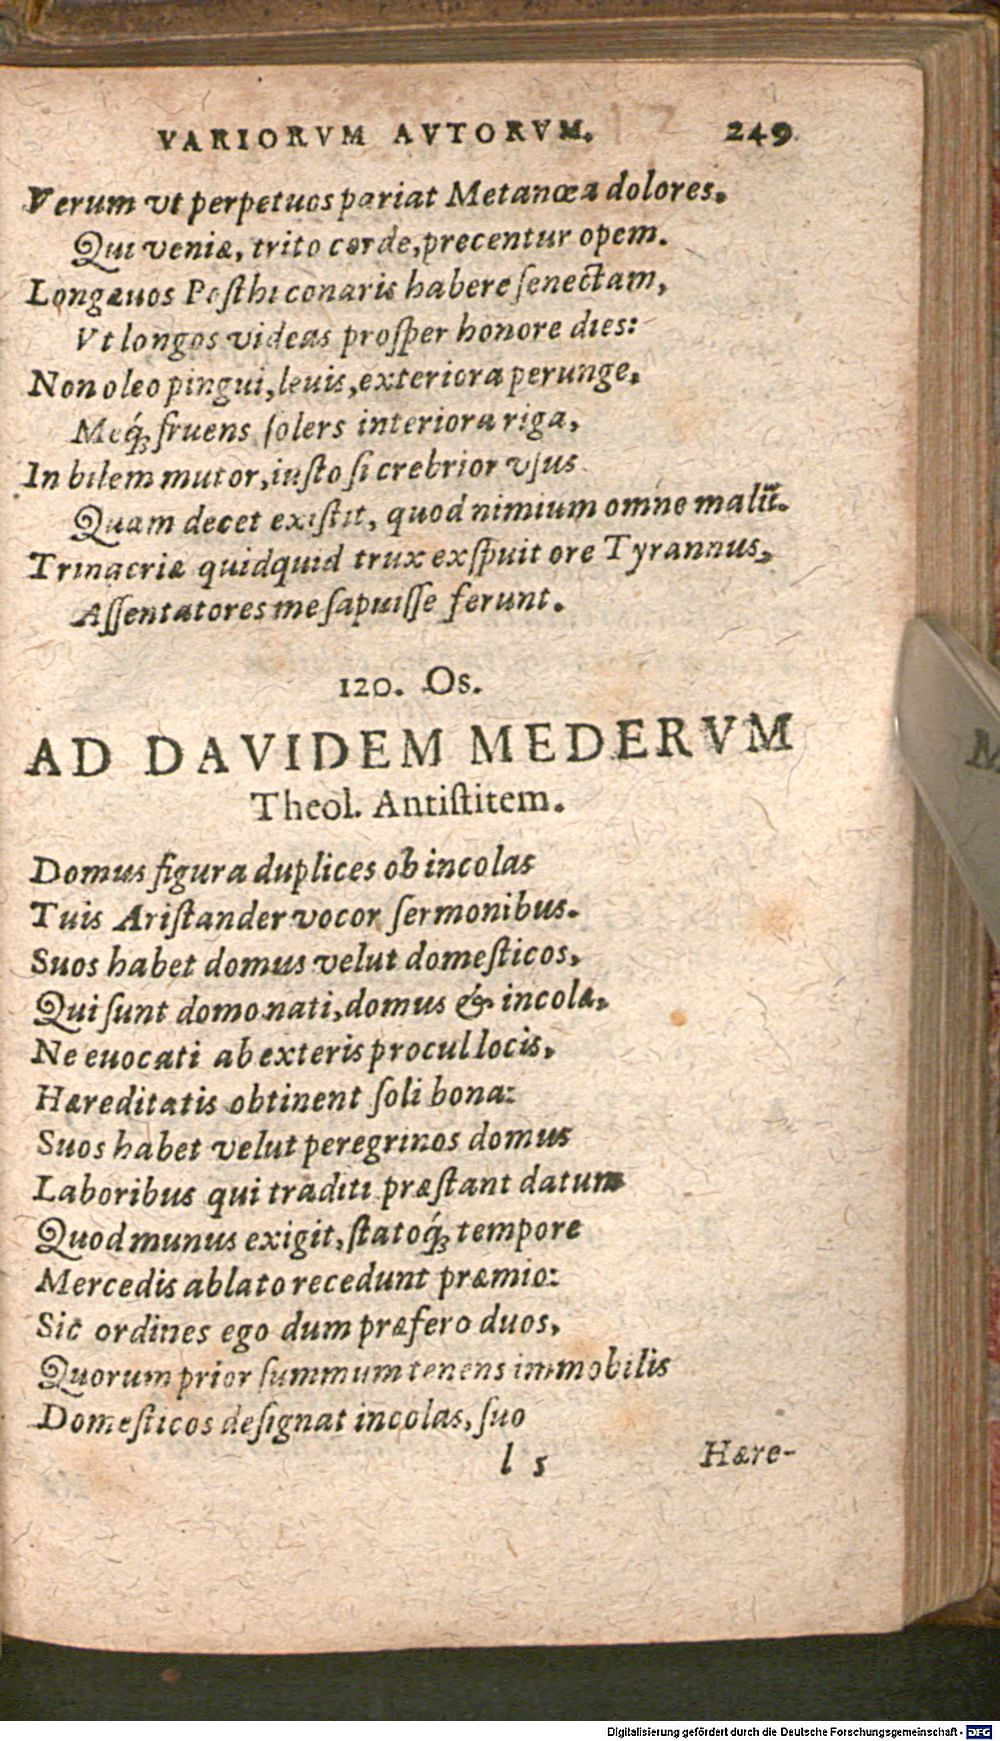 VARIORVM AVTORVM. 249
Verum vt perpetuos pariat Metanœa dolores.
Qui veniæ, trito corde, precentur opem.
Longæuos Posthi conaris habere ſenectam,
Vt longos videas proſper honore dies:
Non oleo pingui, leuis, exteriora perunge,
Meq́; fruens ſolers interiora riga,
In bilem mutor, iuſto ſi crebrior vſus
Quam decet exiſtit, quod nimium omne malū.
Trinacriæ quidquid trux exſpuit ore Tyrannus,
Aſſentatores me ſapuiſſe ferunt.
120. Os.
AD DAVIDEM MEDERVM
Theol. Antiſtitem.
Domus figura duplices ob incolas
Tuis Ariſtander vocor ſermonibus.
Suos habet domus velut domeſticos,
Qui ſunt domo nati, domus & incolæ,
Ne euocati ab exteris procul locis,
Hæreditatis obtinent ſoli bona:
Suos habet velut peregrinos domus
Laboribus qui traditi præſtant datum
Quod munus exigit, ſtatoq́; tempore
Mercedis ablato recedunt præmio:
Sic ordines ego dum præfero duos,
Quorum prior ſummum tenens immobilis
Domeſticos deſignat incolas, ſuo
l 5 Hære-
M
Digitalisierung gefördert durch die Deutsche Forschungsgemeinschaft - DFG